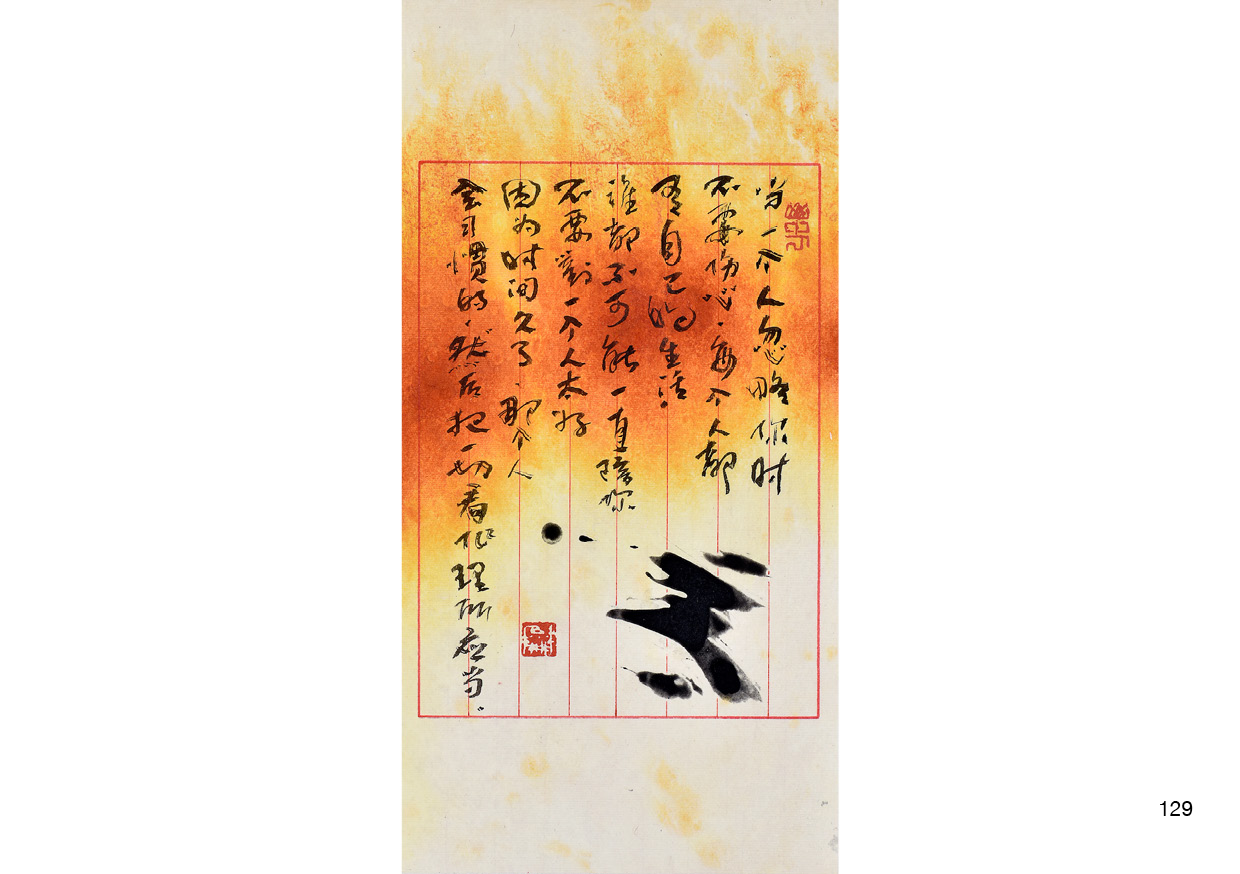 当一个人忽略你时
不要伤心，每个人都
有自己的生活
谁都不可能一直陪你
不要對一个人太好
因为时间久了，那个人
会习惯的，然后把一切看作理所应当。
129